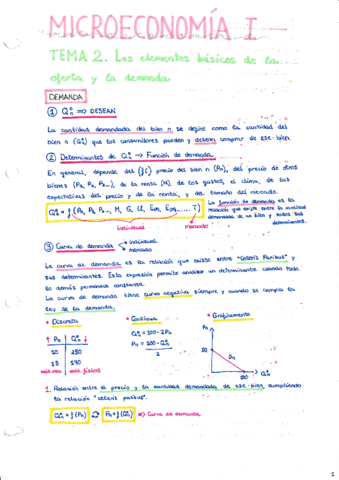 MICROECONOMÍA I
TEMA 2. Los elementos básicos de la
oferta y la demanda
DEMANDA
① Qₙᴰ ⇒ DESEAN
La cantidad demandada del bien n se define como la cantidad del
bien n (Qₙᴰ) que los consumidores pueden y desean comprar de ese bien
② Determinantes de Qₙᴰ → Función de demanda
En general, depende del precio del bien n (Pn), del precio de otros
bienes (Pa, Pb, Pc...), de la renta (M), de los gustos, el clima, de las
expectativas del precio y de la renta, y del tamaño del mercado.
La función de demanda es la
relación que existe entre la cantidad
demandada de un bien y todos sus
determinantes.
individual
mercado
③ Curva de demanda
individual
mercado
La curva de demanda es la relación que existe entre "Ceteris Paribus" y
sus determinantes. Esta expresión permite analizar un determinante cuando todo
lo demás permanece constante.
La curva de demanda tiene curva negativa siempre y cuando se cumpla la
ley de la demanda.
• Discreta
• Continua
• Gráficamente
↑ Pn | Qₙᴰ ↓
10 250
15 240
Qₙᴰ = 100 - 2Pn
Pn = 100 - Qₙᴰ
2
Pn
50
Dn
100
Qₙᴰ
1. Relación entre el precio y la cantidad demandada de ese bien, cumpliendo
la relación "ceteris paribus".
Qₙᴰ = f(Pn) ⇄ Pn = f(Qₙᴰ) ⇒ Curva de demanda
1